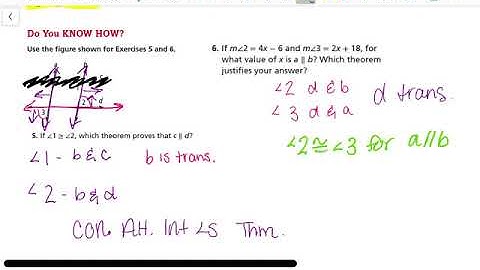 Do You KNOW HOW?
Use the figure shown for Exercises 5 and 6.
5. If ∠1 ≅ ∠2, which theorem proves that c ∥ d?
∠1 - b & c b is trans.
∠2 - b & d
Con. Alt. Int ∠s Thm.
6. If m∠2 = 4x − 6 and m∠3 = 2x + 18, for
what value of x is a ∥ b? Which theorem
justifies your answer?
∠2 d & b d trans.
∠3 d & a
∠2 ≅ ∠3 for a//b